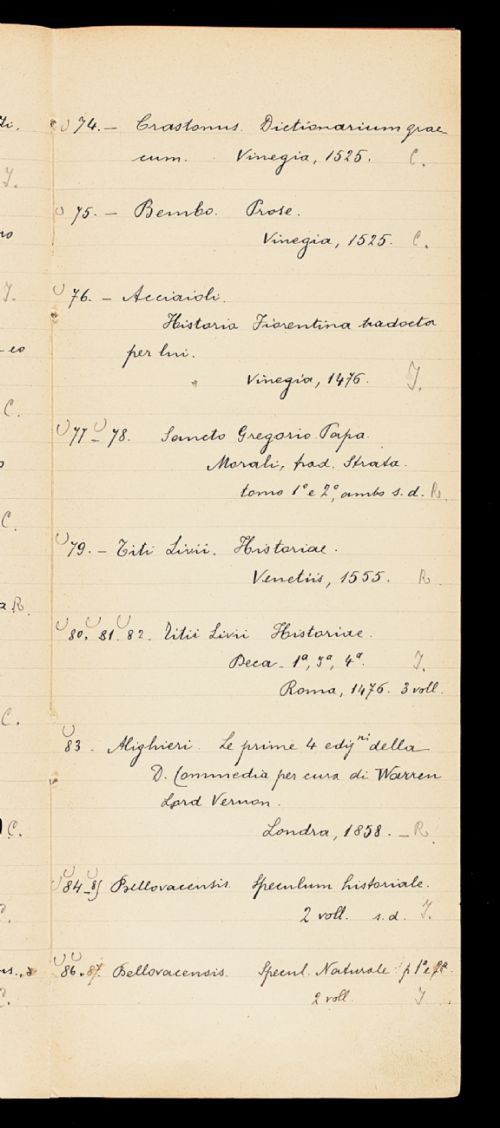 74. — Crastonus. Dictionarium grae
cum. Vinegia, 1525. C.
75. — Bembo. Prose.
Vinegia, 1525. C.
76. — Acciaioli.
Historia Fiorentina tradocta
per lui.
Vinegia, 1476. I.
77 - 78. Sancto Gregorio Papa.
Morali, trad. Strata.
tomo 1º e 2º, ambo s. d. R.
79. — Titi Livii. Historiae.
Venetiis, 1555. R
80. 81. 82. Titii Livii Historiae.
Deca - 1ª, 3ª, 4ª. I.
Roma, 1476. 3 voll.
83. Alighieri. Le prime 4 edijni della
D. Commedia per cura di Warren
Lord Vernon.
Londra, 1858. — R.
84-85 Bellovacensis. Speculum historiale.
2 voll. s. d. I.
86. 87. Bellovacensis. Specul. Naturale p 1ª e 2ª.
2 voll. I